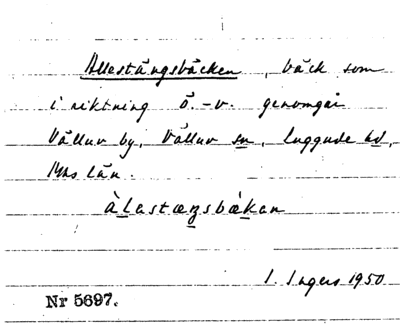 Allestångsbäcken, bäck som
i riktning ö.-v. genomgår
Välluv by, Välluv sn, Luggude hd,
Mhs län.
àlestæŋsbækan
I. Ingers 1950
Nr 5697.